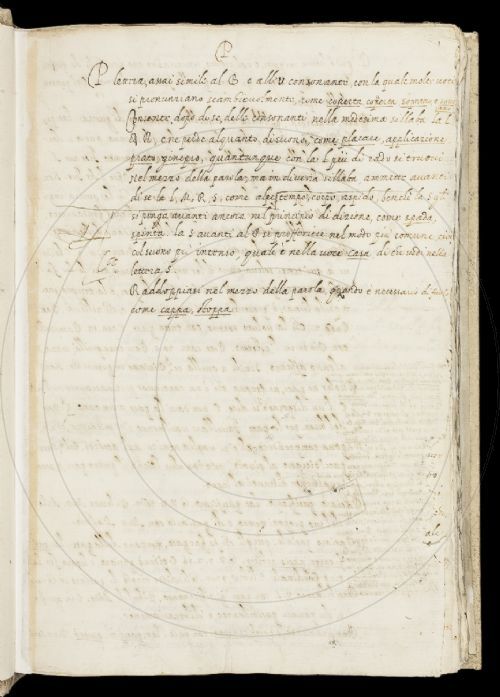 P
P lettera, assai simile al B e all'V consonante, con la quale molte voci
si pronunziano scambievolmente, come coperta coverta soprano
Consente, dopo di se, delle consonanti nella medesima sillaba la L
e R, e ne perde alquanto di suono, come placare, applicazione
prato, ginepro, quantunque con la L più di rado si truovi
nel mezzo della parola, ma in diversa sillaba ammette avanti
di se la L, M, R, S, come alpe, tempo, corpo, aspido, benchè la S gli
si ponga avanti ancora nel principio di dizione, come spada,
spinta. la S avanti al P si profferisce nel modo più comune, cioè
col suono più intenso, quale è nella voce casa, di che vedi nella
lettera S.
Raddoppiasi nel mezzo della parola, quando è necessario
come cappa, stoppa.